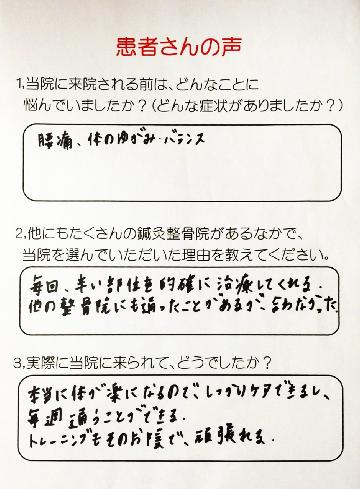 患者さんの声
1,当院に来院される前は、どんなことに
悩んでいましたか?(どんな症状がありましたか?)
腰痛、体のゆがみ・バランス
2,他にもたくさんの鍼灸整骨院があるなかで、
当院を選んでいただいた理由を教えてください。
毎回、辛い部位を的確に治療してくれる.
他の整骨院にも通ったことがあるが、合わなかった.
3,実際に当院に来られて、どうでしたか?
本当に体が楽になるので、しっかりケアできるし、
毎週通うことができる.
トレーニングもそのお陰で、頑張れる.